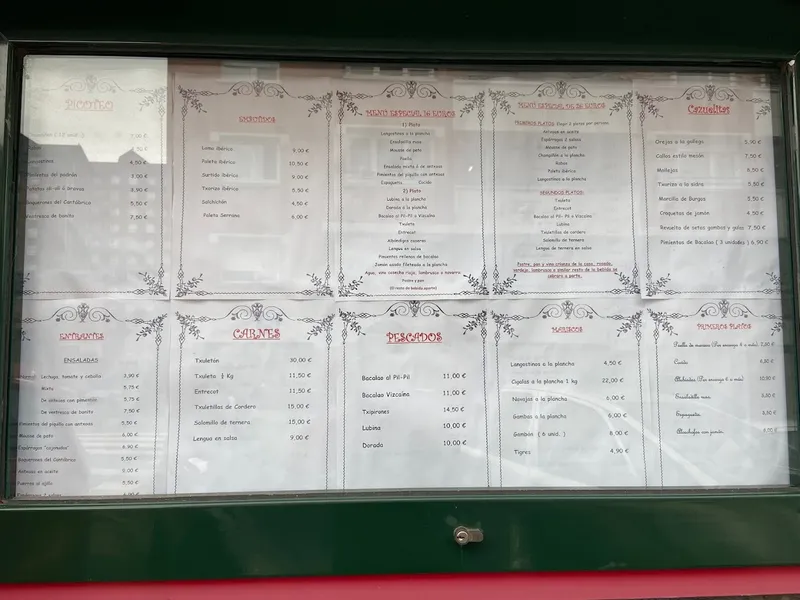 PICOTEO
4,50 €
Pimientos del padrón
Boquerones del Cantábrico 5,50 €
Ventresca de bonito 7,50 €
EMBUTIDOS
Lomo Ibérico 9,00 €
Paleta Ibérico 10,50 €
Surtido Ibérico 9,00 €
Txorizo Ibérico 5,50 €
Salchichón 4,50 €
Paleta Serrana 6,00 €
MENÚ ESPECIAL 16 EUROS
1) Plato
Langostinos a la plancha
Ensaladilla rusa
Mousse de pato
Paella
Ensalada mixta ó de antxoas
Pimientos del piquillo con antxoas
Espaguetis Cocido
2) Plato
Lubina a la plancha
Dorada a la plancha
Bacalao al Pil-Pil o Vizcaina
Txuleta
Entrecot
Albóndigas caseras
Lengua en salsa
Pimientos rellenos de bacalao
Jamón asado fileteado a la plancha
Agua, vino cosecha rioja, lambrusco o navarro
Postre y pan
(El resto de bebida aparte)
Espárragos 2 salsas
Mousse de pato
Champiñón a la plancha
Rabas
Paleta Ibérica
Langostinos a la plancha
SEGUNDOS PLATOS:
Txuleta
Entrecot
Bacalao al Pil- Pil o Vizcaina
Lubina
Txuletillas de cordero
Solomillo de ternera
Lengua de ternera en salsa
Postre, pan y vino crianza de la casa, rosado,
verdejo, lambrusco o similar resto de la bebida se
cobrara a parte.
Cazuelitas
Orejas a la gallega 5,90 €
Callos estilo mesón 7,50 €
Mollejas 8,50 €
Txorizo a la sidra 5,50 €
Morcilla de Burgos 5,50 €
Croquetas de jamón 4,50 €
Revuelto de setas gambas y gulas 7,50 €
Pimientos de Bacalao ( 3 unidades ) 6,90 €
ENTRANTES
ENSALADAS
Lechuga, tomate y cebolla 3,90 €
Mixta 5,75 €
De delicias con pimentón 5,75 €
De ventresca de bonito 7,50 €
Pimientos del piquillo con antxoas 5,50 €
Mousse de pato 6,00 €
Espárragos "cojonudos" 6,90 €
Boquerones del Cantábrico 5,50 €
Antxoas en aceite 9,00 €
Puerros al ajillo 5,50 €
CARNES
Txuletón 30,00 €
Txuleta ½ Kg 11,50 €
Entrecot 11,50 €
Txuletillas de Cordero 15,00 €
Solomillo de ternera 15,00 €
Lengua en salsa 9,00 €
PESCADOS
Bacalao al Pil-Pil 11,00 €
Bacalao Vizcaina 11,00 €
Txipirones 14,50 €
Lubina 10,00 €
Dorada 10,00 €
MARISCOS
Langostinos a la plancha 4,50 €
Cigalas a la plancha 1 kg 22,00 €
Navajas a la plancha 6,00 €
Gambas a la plancha 6,00 €
Gambón ( 6 unid. ) 8,00 €
Tigres 4,90 €
PRIMEROS PLATOS
Paella de marisco (Por encargo 6 o más)
Cocido
Alubiadas (Por encargo 6 o más)
Ensaladilla rusa
Espaguetis
Alcachofas con jamón